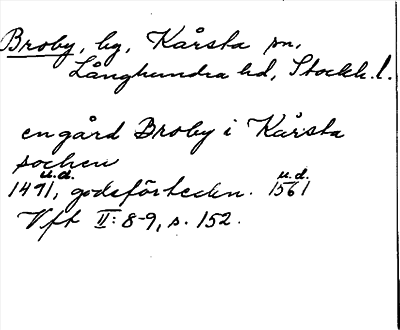 Broby, by, Kårsta sn,
Långhundra hd, Stockh. l.
en gård Broby i Kårsta
socken
u.d. u.d.
1491, godsförteckn. 1561
Vft II: 8-9, s. 152.